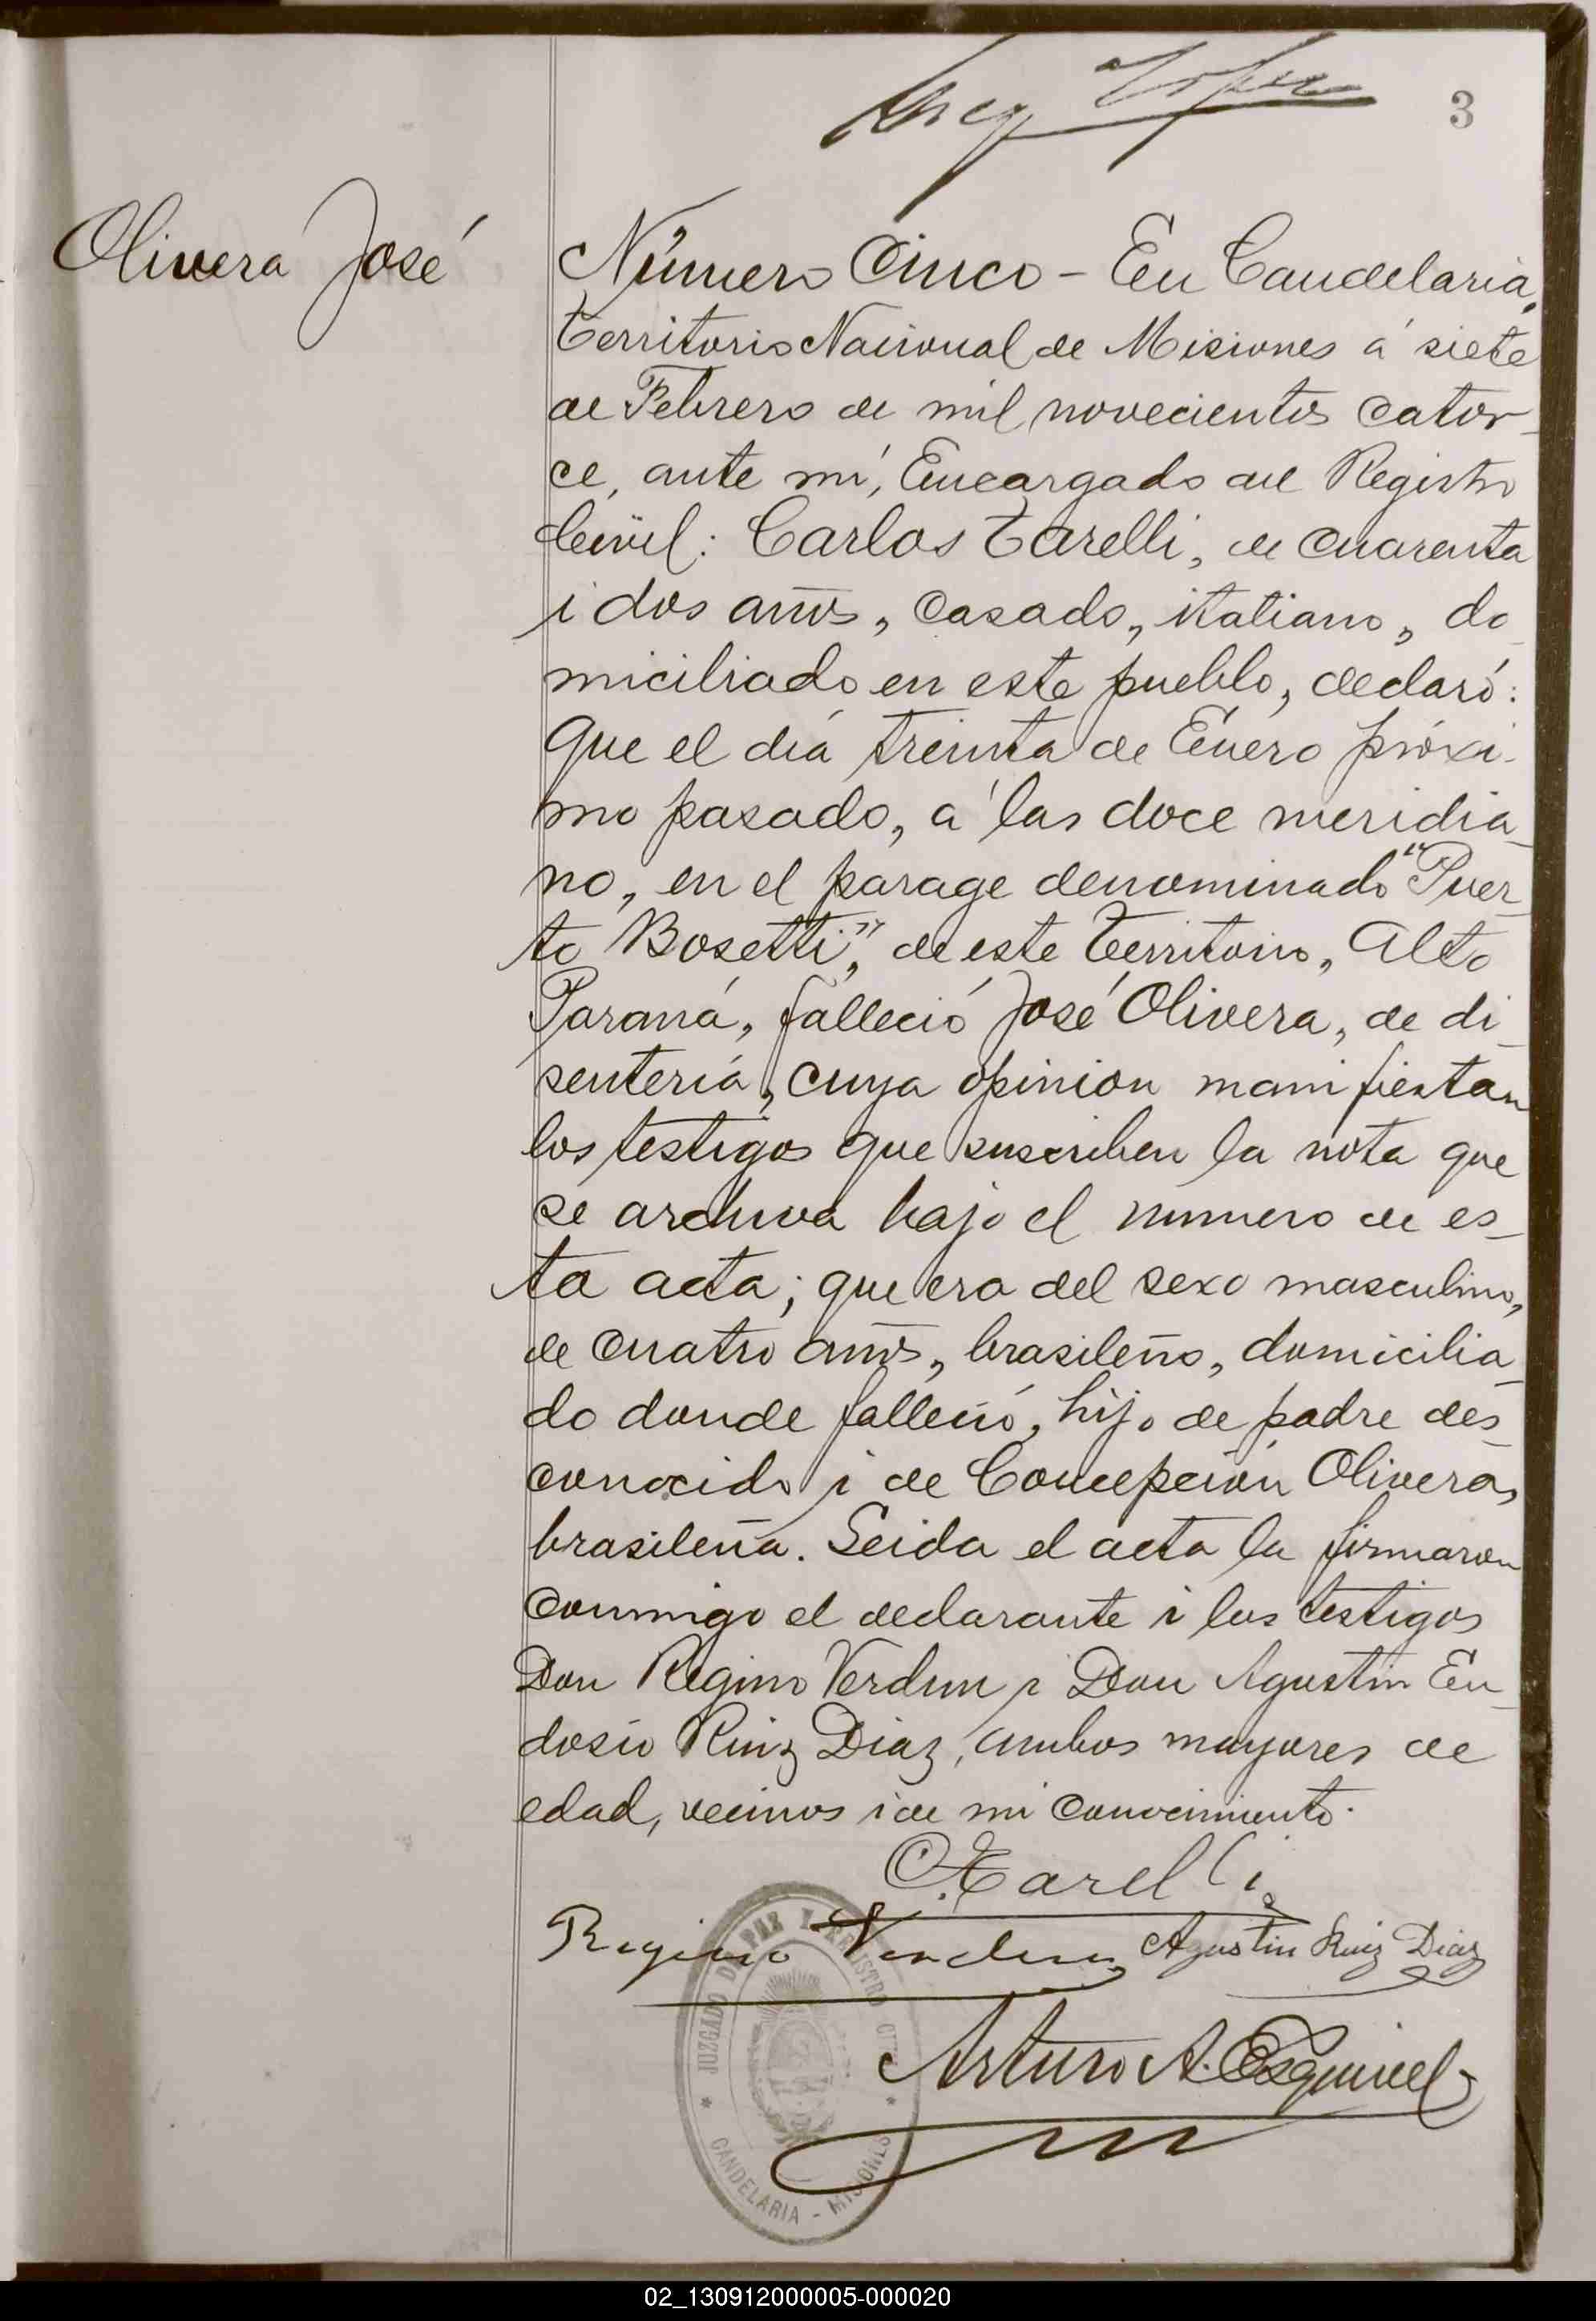 3
Olivera José
Número Cinco - En Candelaria,
Territorio Nacional de Misiones á siete
de Febrero de mil novecientos cator-
ce, ante mí, Encargado del Registro
Civil: Carlos Tarelli, de cuarenta
i dos años, casado, italiano, do
miciliado en este pueblo, declaró:
Que el día treinta de Enero próxi-
mo pasado, á las doce meridia
no, en el parage denominado "Puer
to Bosetti", de este Territorio, Alto
Paraná, falleció José Olivera, de di
sentería, cuya opinion manifiestan
los testigos que suscriben la nota que
se archiva bajo el numero de es-
ta acta; que era del sexo masculino,
de cuatro años, brasileño, domicilia
do donde falleció, hijo de padre des
conocido i de Concepción Olivera,
brasileña. Leida el acta la firmaron
conmigo el declarante i los testigos
Don Regino Verdun i Don Agustin Eu
dosio Ruiz Diaz, ambos mayores de
edad, vecinos i de mi conocimiento.
C. Tarelli
Regino Verdun Agustin Ruiz Diaz
Arturo A. Esquivel
JUZGADO DE PAZ Y REGISTRO CIVIL
CANDELARIA - MISIONES
02_130912000005-000020